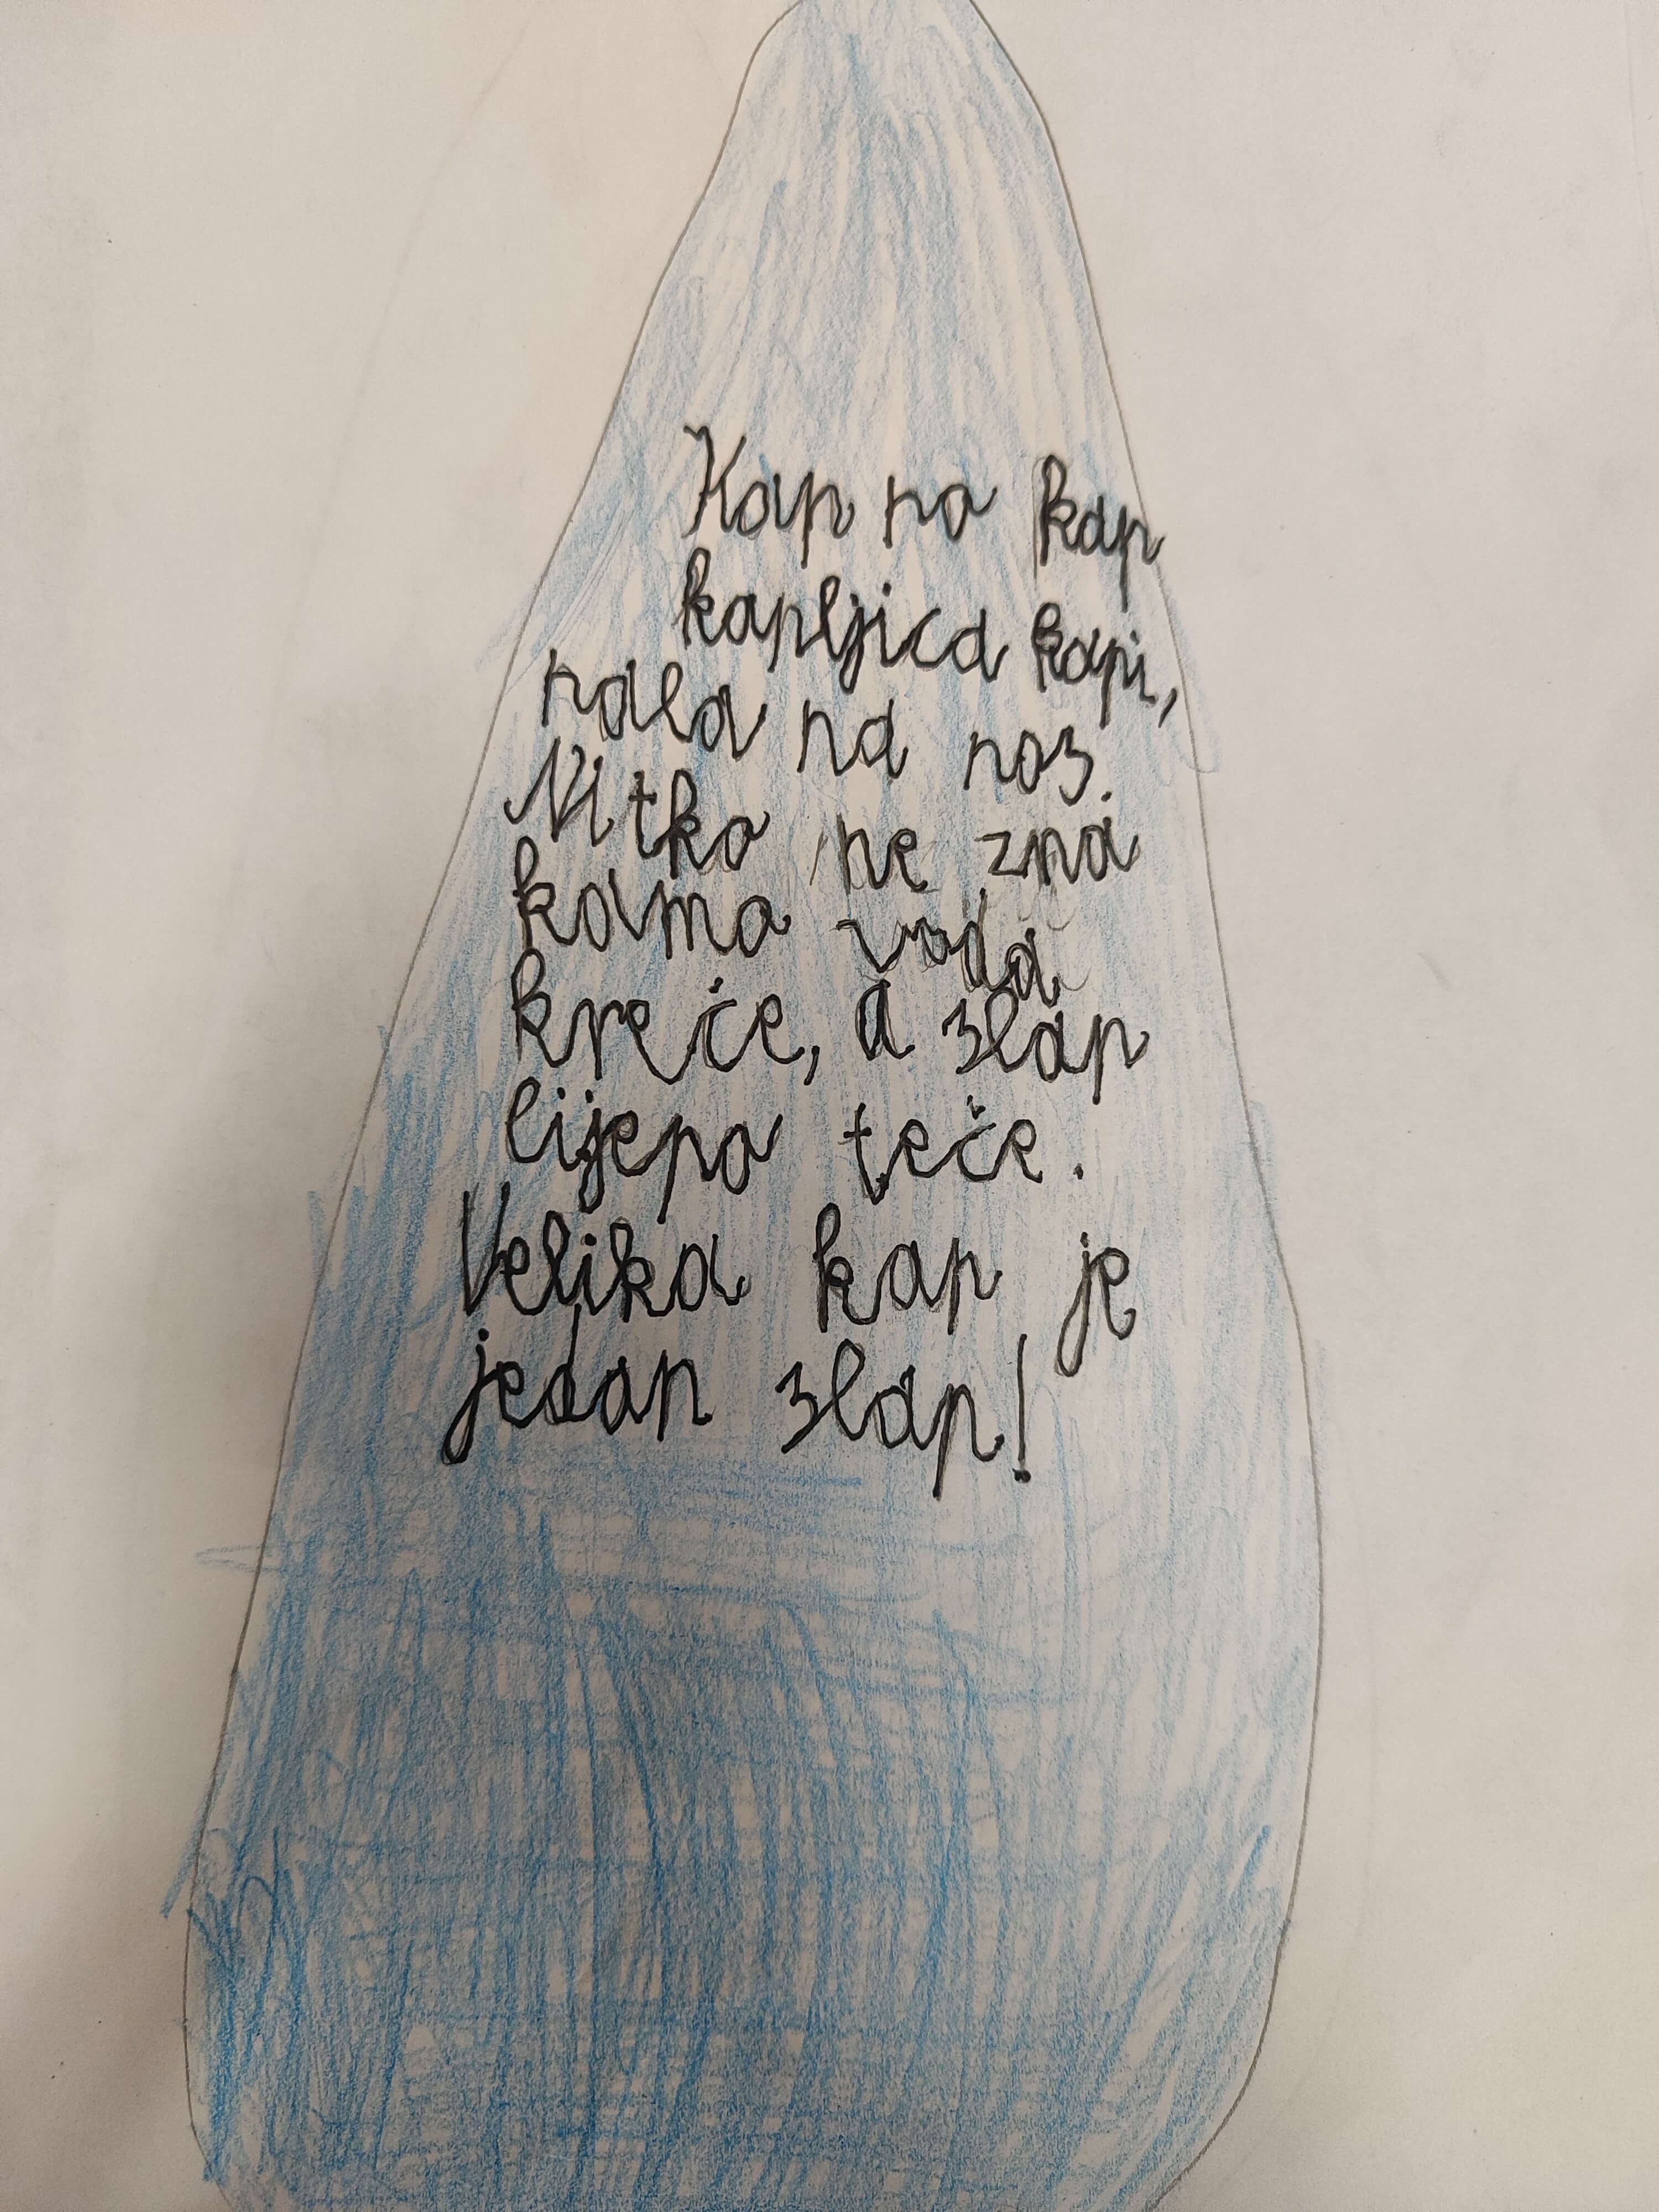 Kap na kap
kapljica kapi,
pala na nos.
Nitko ne zna
kamo voda
kreće, a slap
lijepo teče.
Velika kap je
jedan slap!